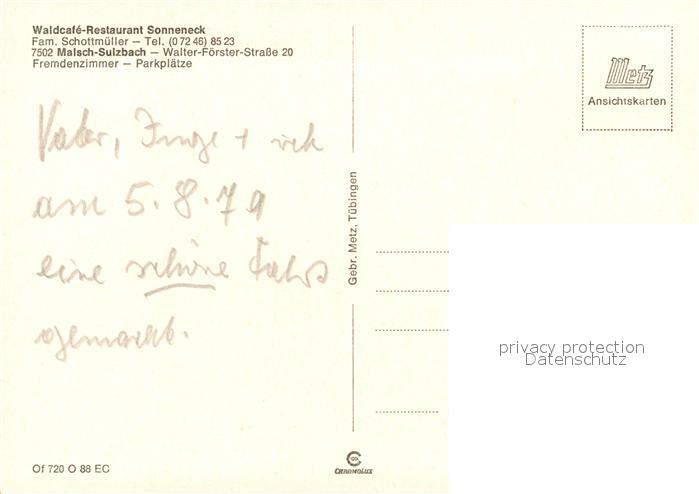 Waldcafé-Restaurant Sonneneck
Fam. Schottmüller — Tel. (0 72 46) 85 23
7502 Malsch-Sulzbach — Walter-Förster-Straße 20
Fremdenzimmer — Parkplätze
Vater, Inge + ich
am 5.8.79
eine schöne Fahrt
gemacht.
Gebr. Metz, Tübingen
Metz
Ansichtskarten
privacy protection
Datenschutz
Of 720 O 88 EC
CHROMOLUX